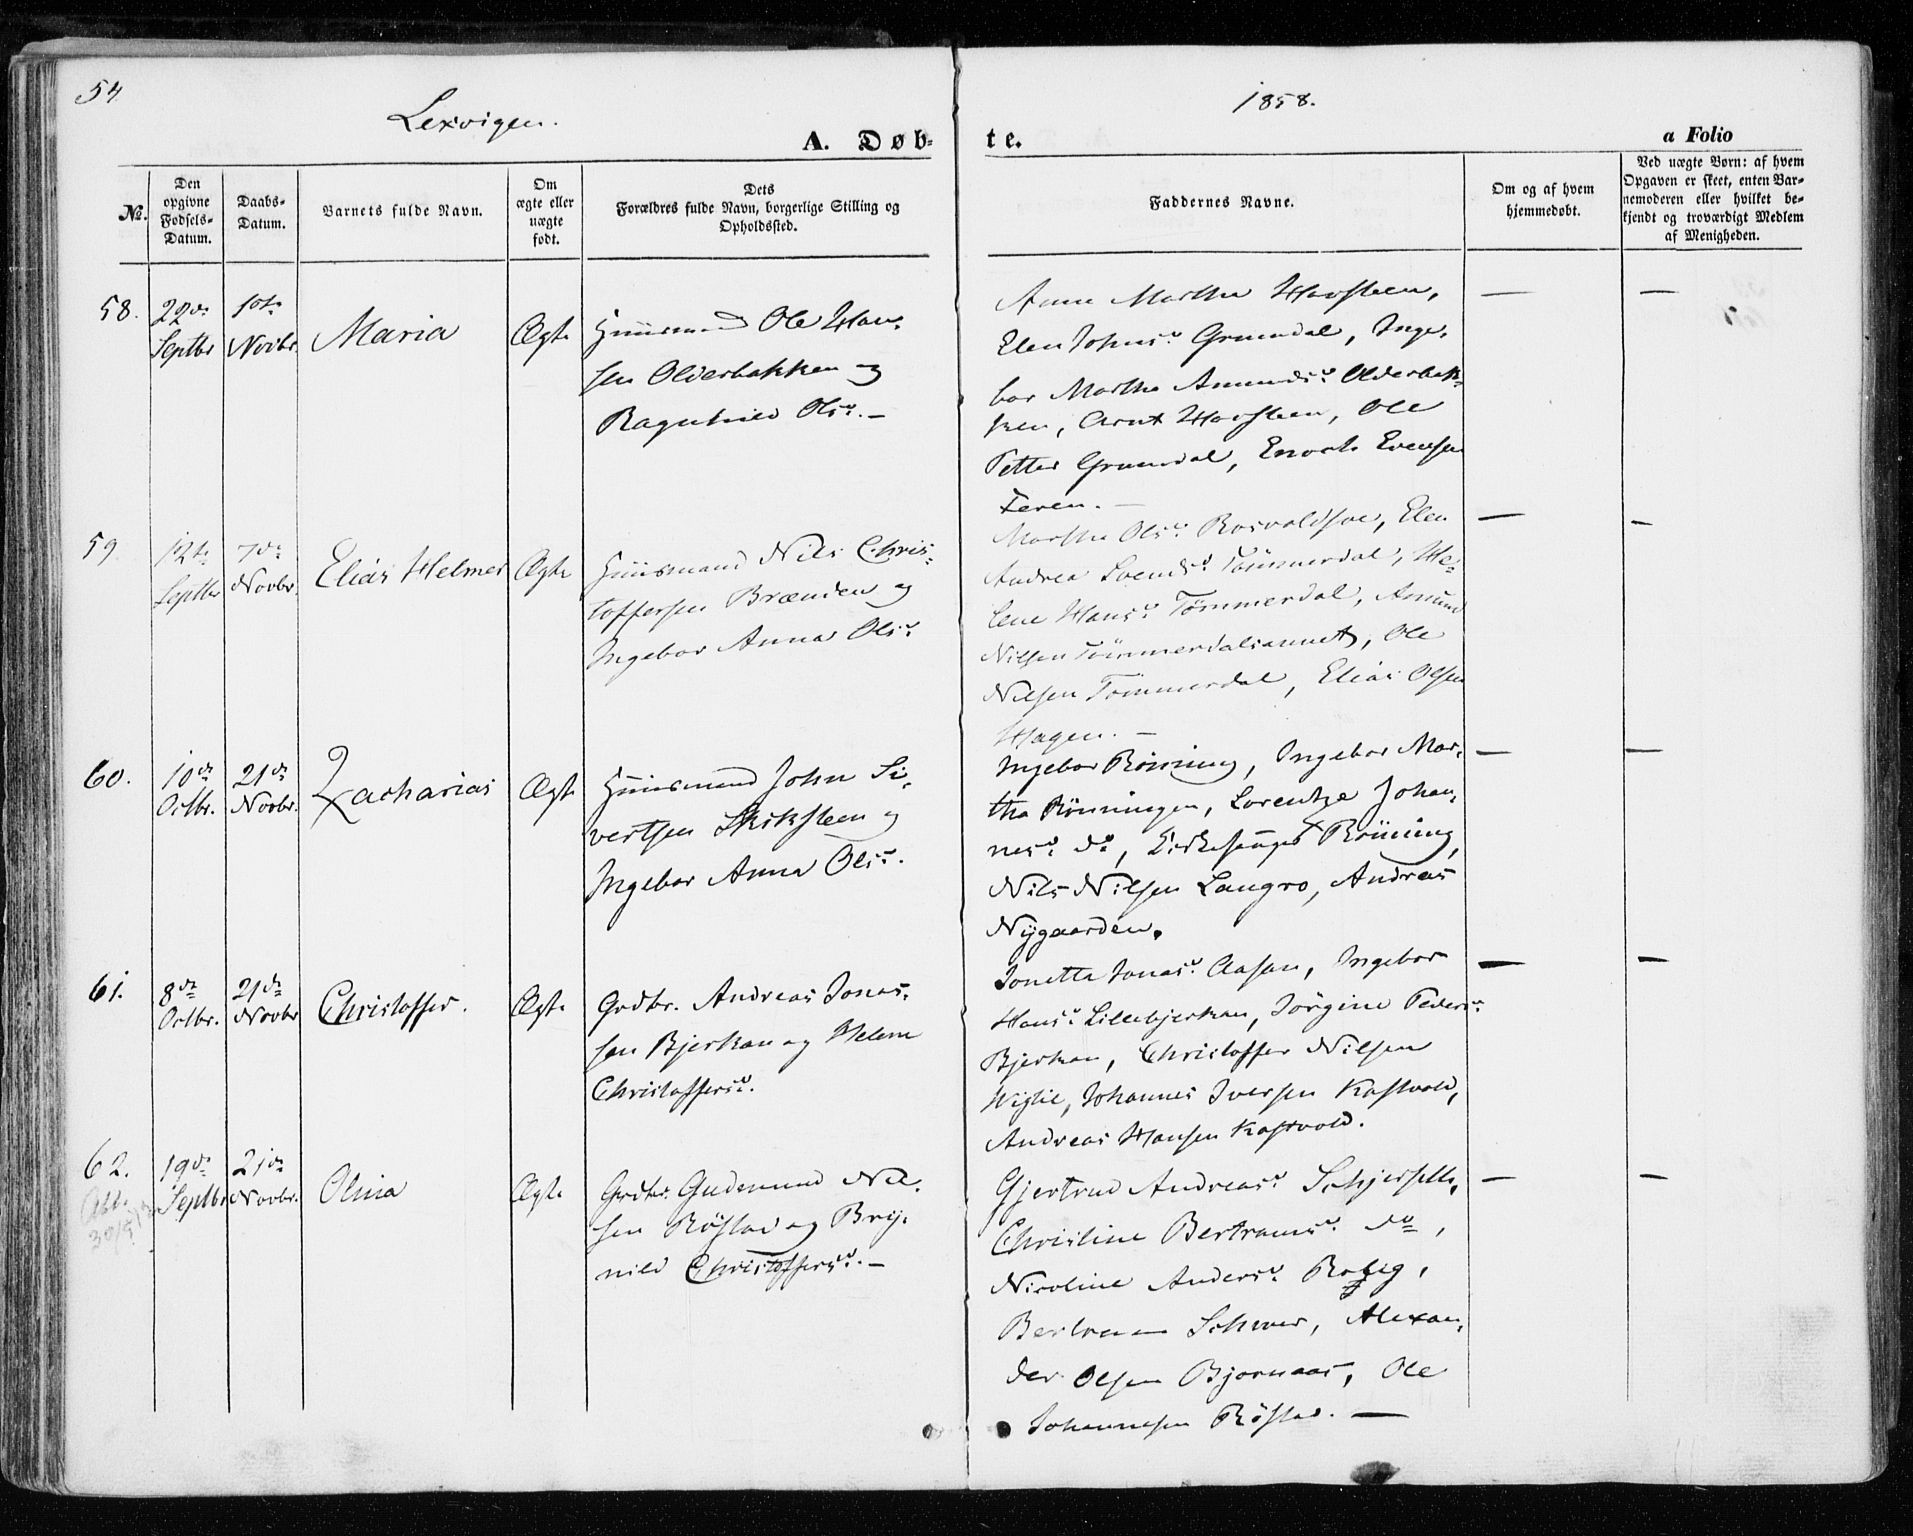 54
Lexvigen.
1858.
A. Døb-
te.
a Folio
No.
Den opgivne Fødsels-Datum.
Daabs-Datum.
Barnets fulde Navn.
Om ægte eller uægte født.
Dets
Forældres fulde Navn, borgerlige Stilling og
Opholdssted.
Faddernes Navne.
Om og af hvem
hjemmedøbt.
Ved uægte Børn: af hvem
Opgaven er skeet, enten Bar-
nemoderen eller hvilket be-
kjendt og troværdigt Medlem
af Menigheden.
58. 22de Septbr 1ste Novbr. Maria Ægte
Huusmand Ole Han-
sen Olderbakken og
Ragnhild Olsd. —
Anne Martha Hovsteen,
Elen Johnsd. Grandal, Inge-
bor Martha Amundsd. Olderbak-
ken, Arnt Hovsteen, Ole
Petter Grandal, Enoch Evensen
Feren. —
— —
59. 12te Septbr 7de Novbr. Elias Helmer Ægte
Huusmand Nils Chris-
toffersen Brænden og
Ingebor Anna Olsd.
Martha Olsd. Rosvoldsoe, Elen
Andrea Svendsd. Tömmerdal, He-
lene Hansd. Tömmerdal, Amund
Nilsen Tömmerdalsaunet, Ole
Nilsen Tömmerdal, Elias Olsen
Hagen. —
— —
60. 10de Octbr. 21de Novbr. Zacharias Ægte
Huusmand John Si-
vertsen Skiksteen og
Ingebor Anna Olsd.
Ingebor Rönning, Ingebor Mar-
tha Rönningen, Lorentze Johan-
nesd. do, Kirkesanger Rönning,
Nils Nilsen Langro, Andreas
Nygaarden.
— —
61. 8de Octbr. 21de Novbr Christoffer. Ægte
Grdbr. Andreas Jonas-
sen Bjerkan og Helene
Christoffersd.
Jonetta Jonasd. Aasan, Ingebor
Hansd. Lillebjerkan, Jörgine Pedersd.
Bjerkan, Christoffer Nilsen
Johannes Iversen Kastvold,
Andreas Hansen Kastvold.
— —
62. 19de Septbr 21de Novbr. Olina Ægte
Grdbr. Gudmund Nil-
sen Röstad og Bry-
nild Christoffersd. —
Gjertrud Andreasd. Schjerstle,
Christine Bertramsd. do,
Nicoline Andersd. Rotzig,
Bertram Schwer, Alexan-
der Olsen Bjornaas, Ole
Johannesen Röstad. —
— —